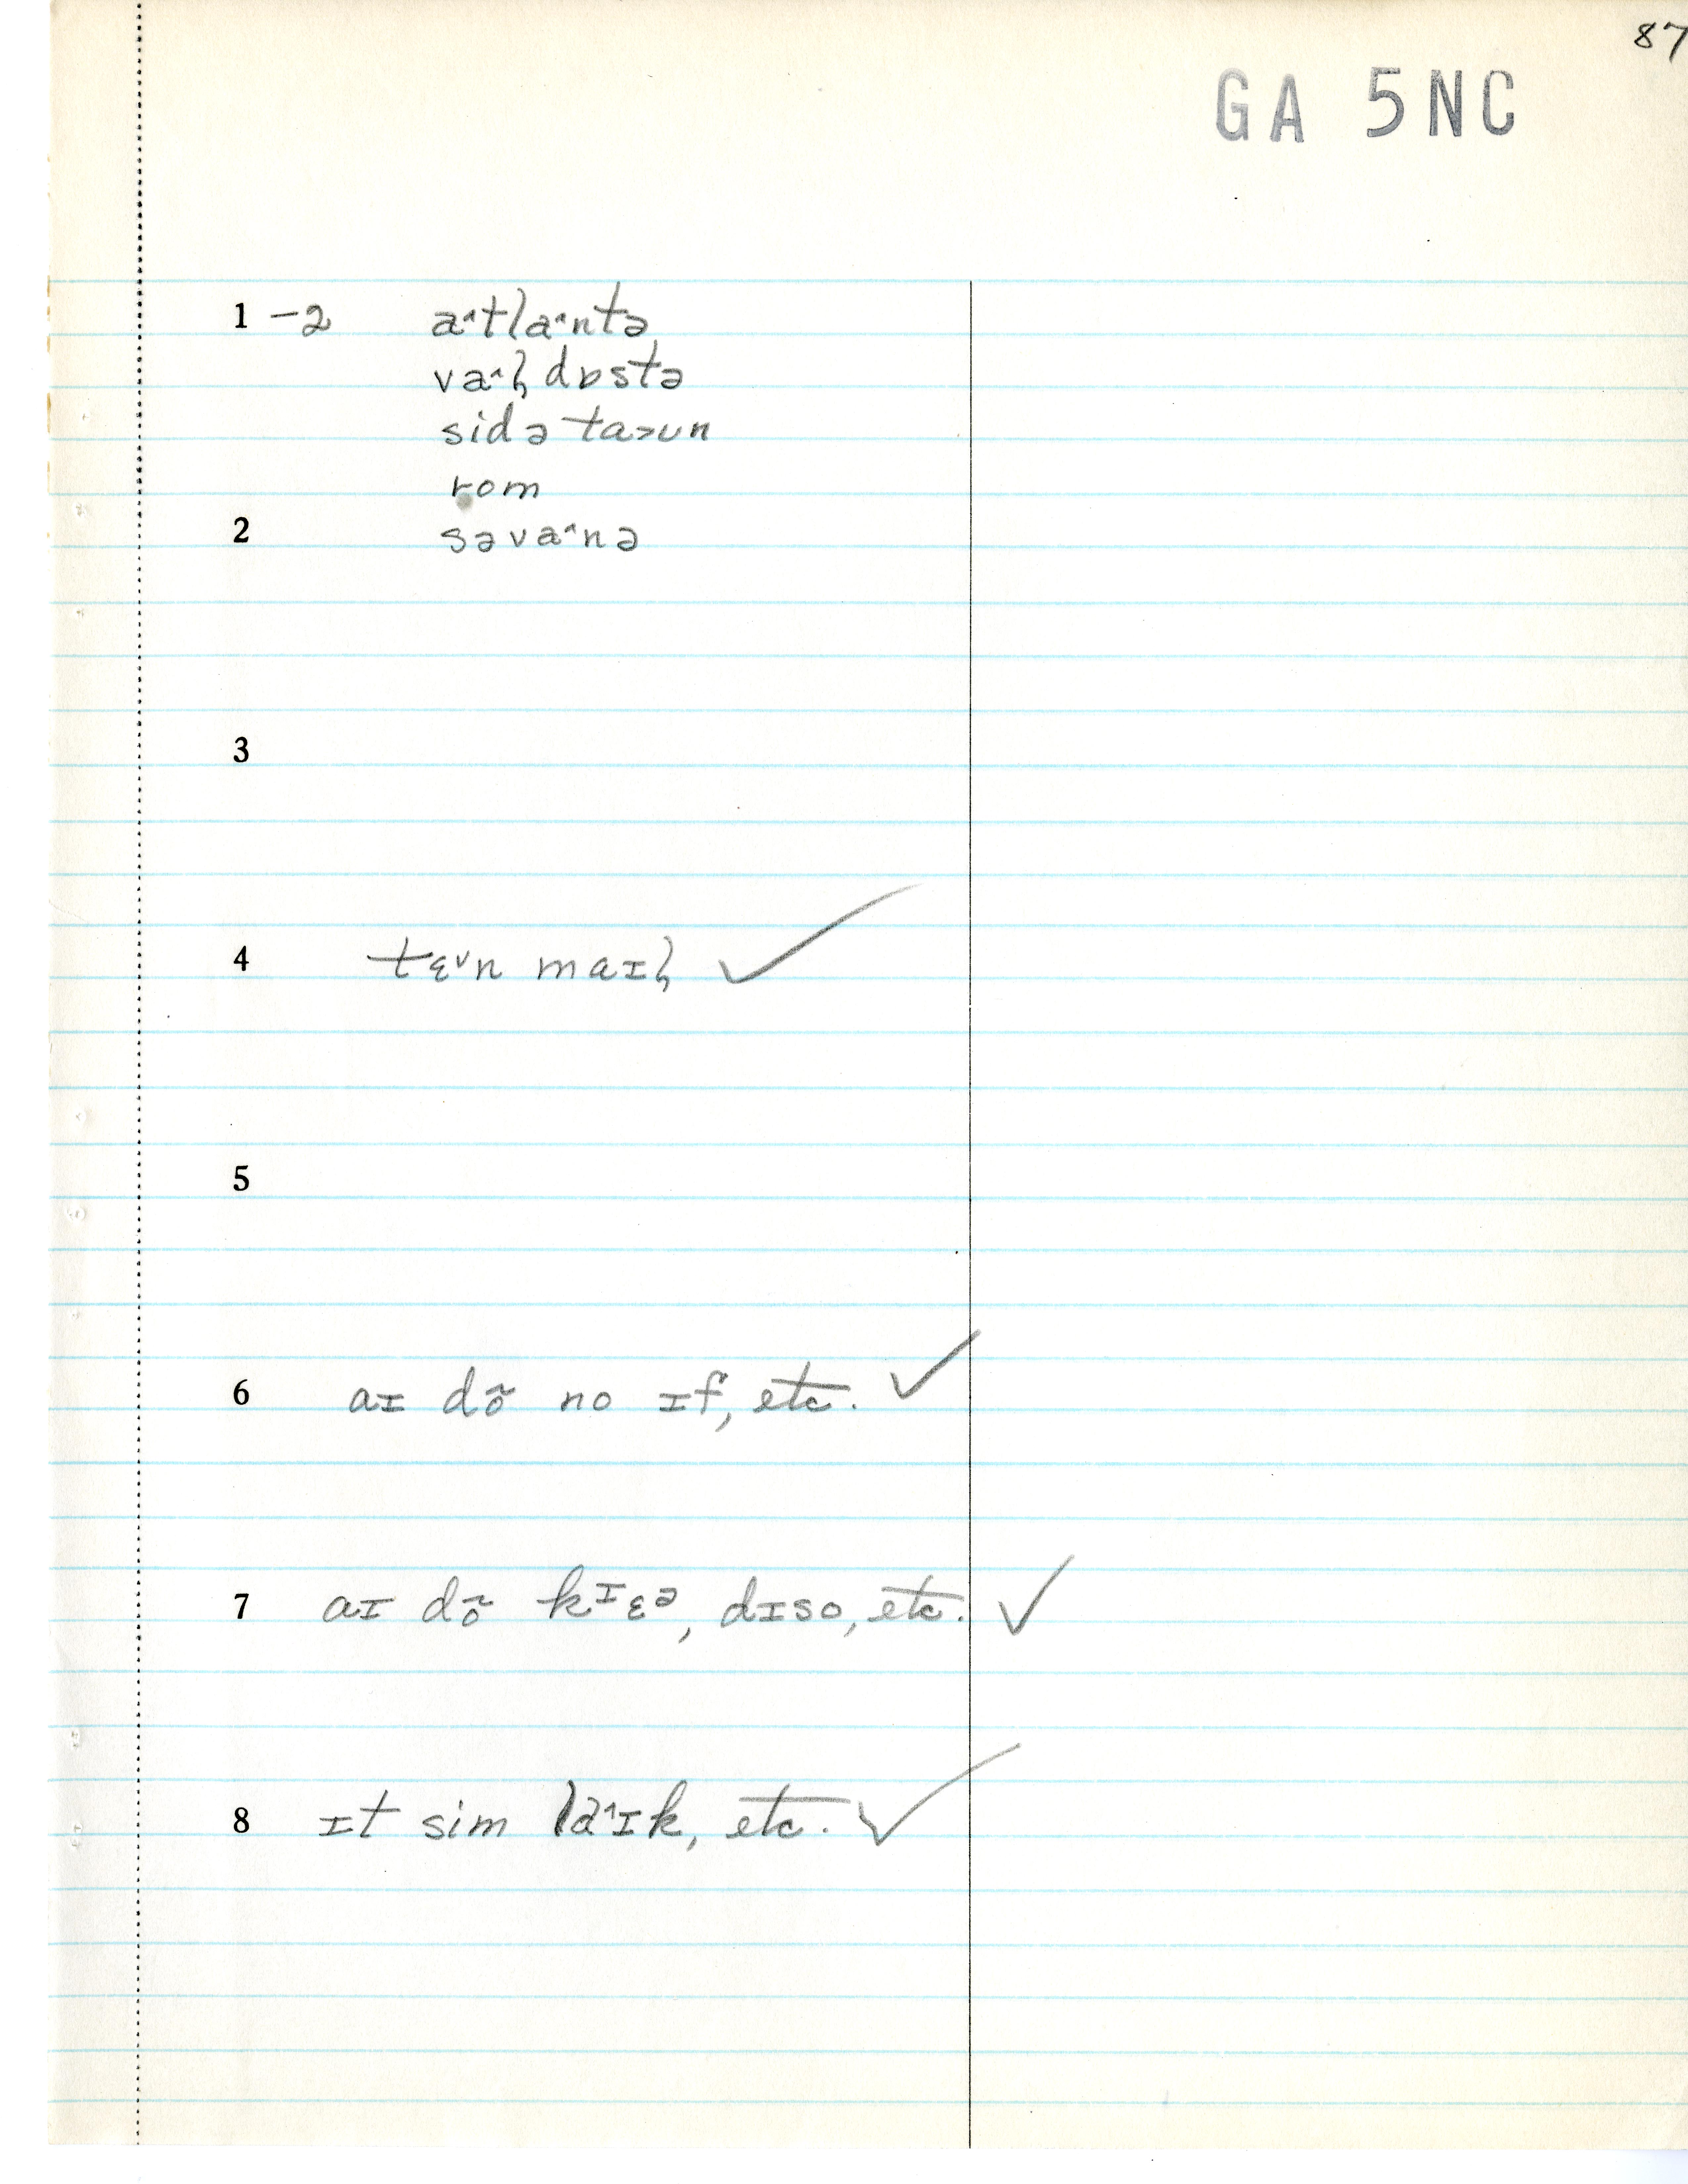 87
GA 5NC
1 -2 a^tla^ntə
va^l̩dɒstə
sidə ta>ʊn
rom
2 səva^nə
3
4 tɛ˅n maɪl̩ ✓
5
6 aɪ dõ no ɪf, etc. ✓
7 aɪ dõ kᶦɛᵊ, dɪso, etc. ✓
8 ɪt sim la^ɪk, etc. ✓